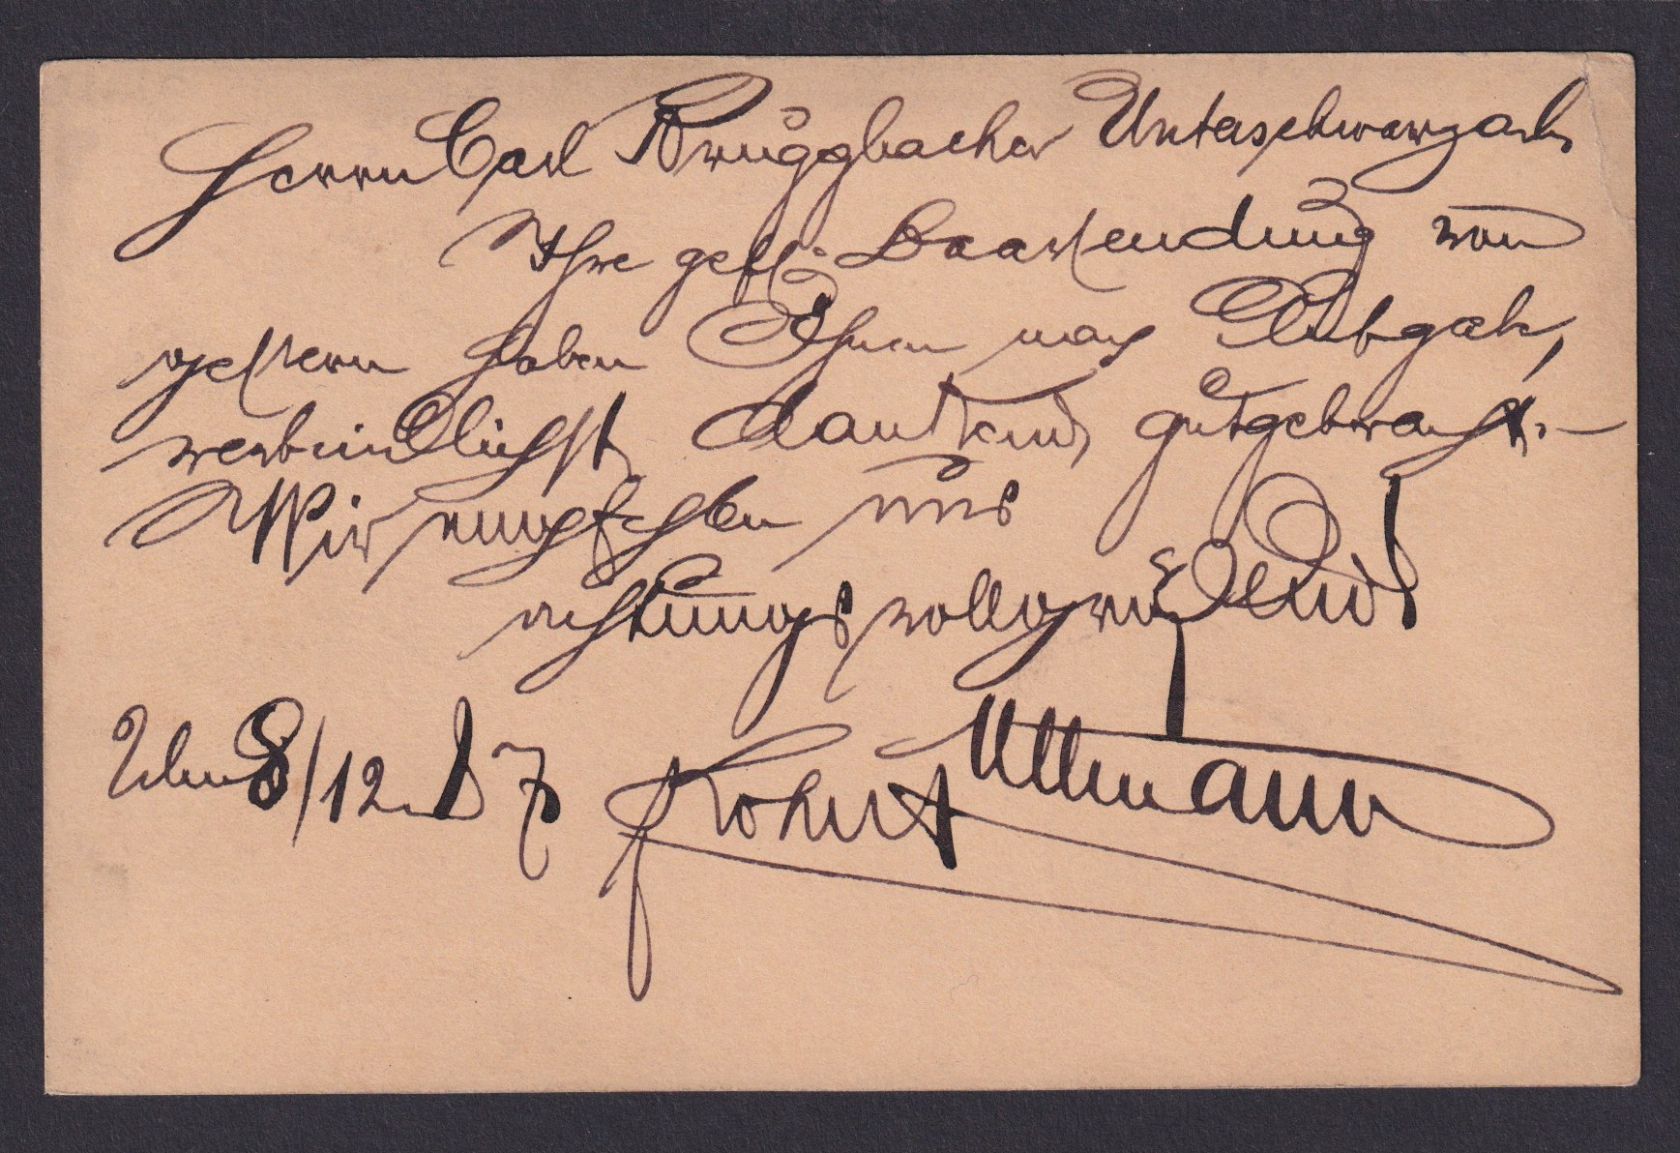 Herrn Carl Bruggbacher Unterschwarzach
Ihre gefl. Baarsendung von
gestern haben Ihnen nach Aufgabe,
verbindlichst dankend, gutgebracht. –
Wir empfehlen uns
achtungsvoll grüßend
Ulm 8/12. 87 Kohn & Ullmann